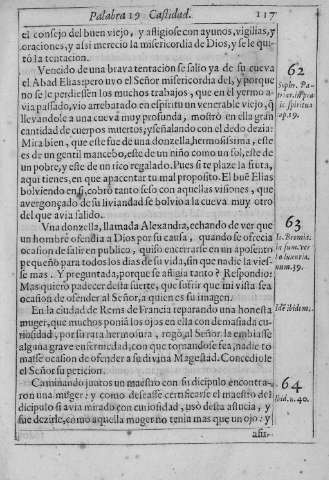 Palabra 19 Castidad. 117
el consejo del buen viejo, y afligiose con ayunos, vigilias, y
oraciones, y alsi merecio la misericordia de Dios, y se le qui-
tò la tentacion.
Vencido de una brava tentacion se salio ya de su cueva
el Abad Elias: pero tuvo el Señor misericordia del, y porque
no se le perdiessen los muchos trabajos, que en el yermo a-
via passado, vio arrebatado en espiritu un venerable viejo, q̃
llevandole a una cueva muy profunda, mostrò en ella gran
cantidad de cuerpos muertos; y señalando con el dedo dezia:
Mira bien, que este fue de una donzella, hermosissima, este
es de un gentil mancebo, este de un niño como un sol, este de
un pobre, y este de un rico regalado. Pues si te plaze la fruta,
aqui tienes, en que apacentar tu mal proposito. El buẽ Elias
bolviendo en si, cobrò tanto seso con aquellas visiones, que
avergonçado de su liviandad se bolvio a la cueva muy otro
del que avia salido.
Una donzella, llamada Alexandra, echando de ver que
un hombre ofendia a Dios por su causa, quando se ofrecia
ocasion de salir en publico, quiso encerrarse en un aposento
pequeño para todos los dias de su vida, sin que nadie la vies-
se mas. Y preguntada, porque se afligia tanto? Respondio:
Mas quiero padecer desta suerte, que sufrir que mi vista sea
ocasion de ofender al Señor, a quien es su imagen.
En la ciudad de Rems de Francia reparando una honesta
muger, que muchos ponia los ojos en ella con demasiada cu-
riosidad, por su rara hermosura, rogò, al Señor le embiasse
alguna grave enfermedad, con que tornandose fea, nadie to-
masse ocasion de ofender a su divina Magestad. Concediole
el Señor su peticion.
Caminando juntos un maestro con su dicipulo encontra-
ron una muger: y como deseasse certificarse el maestro del
dicipulo si avia mirado con curiosidad, usò desta astucia, y
fue dezirle, como aquella muger no tenia mas que un ojo: y
assi-
62
Soph. Pa-
ap. 19.
63
num. 39.
Idẽ ibidem.
64
ibid. n. 40.